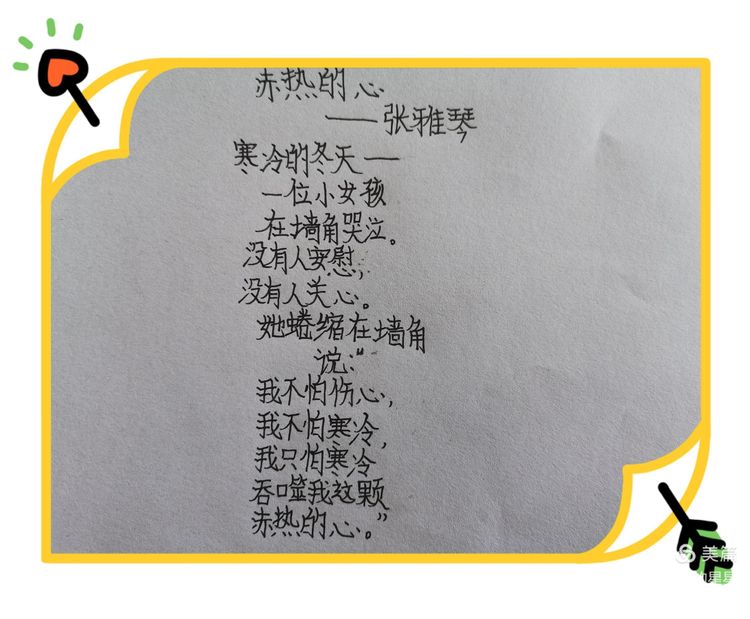 赤热的心
——张雅琴
寒冷的冬天——
一位小女孩
在墙角哭泣。
没有人安慰,
没有人关心。
她蜷缩在墙角
说:“
我不怕伤心,
我不怕寒冷,
我只怕寒冷
吞噬我这颗
赤热的心。”
美篇